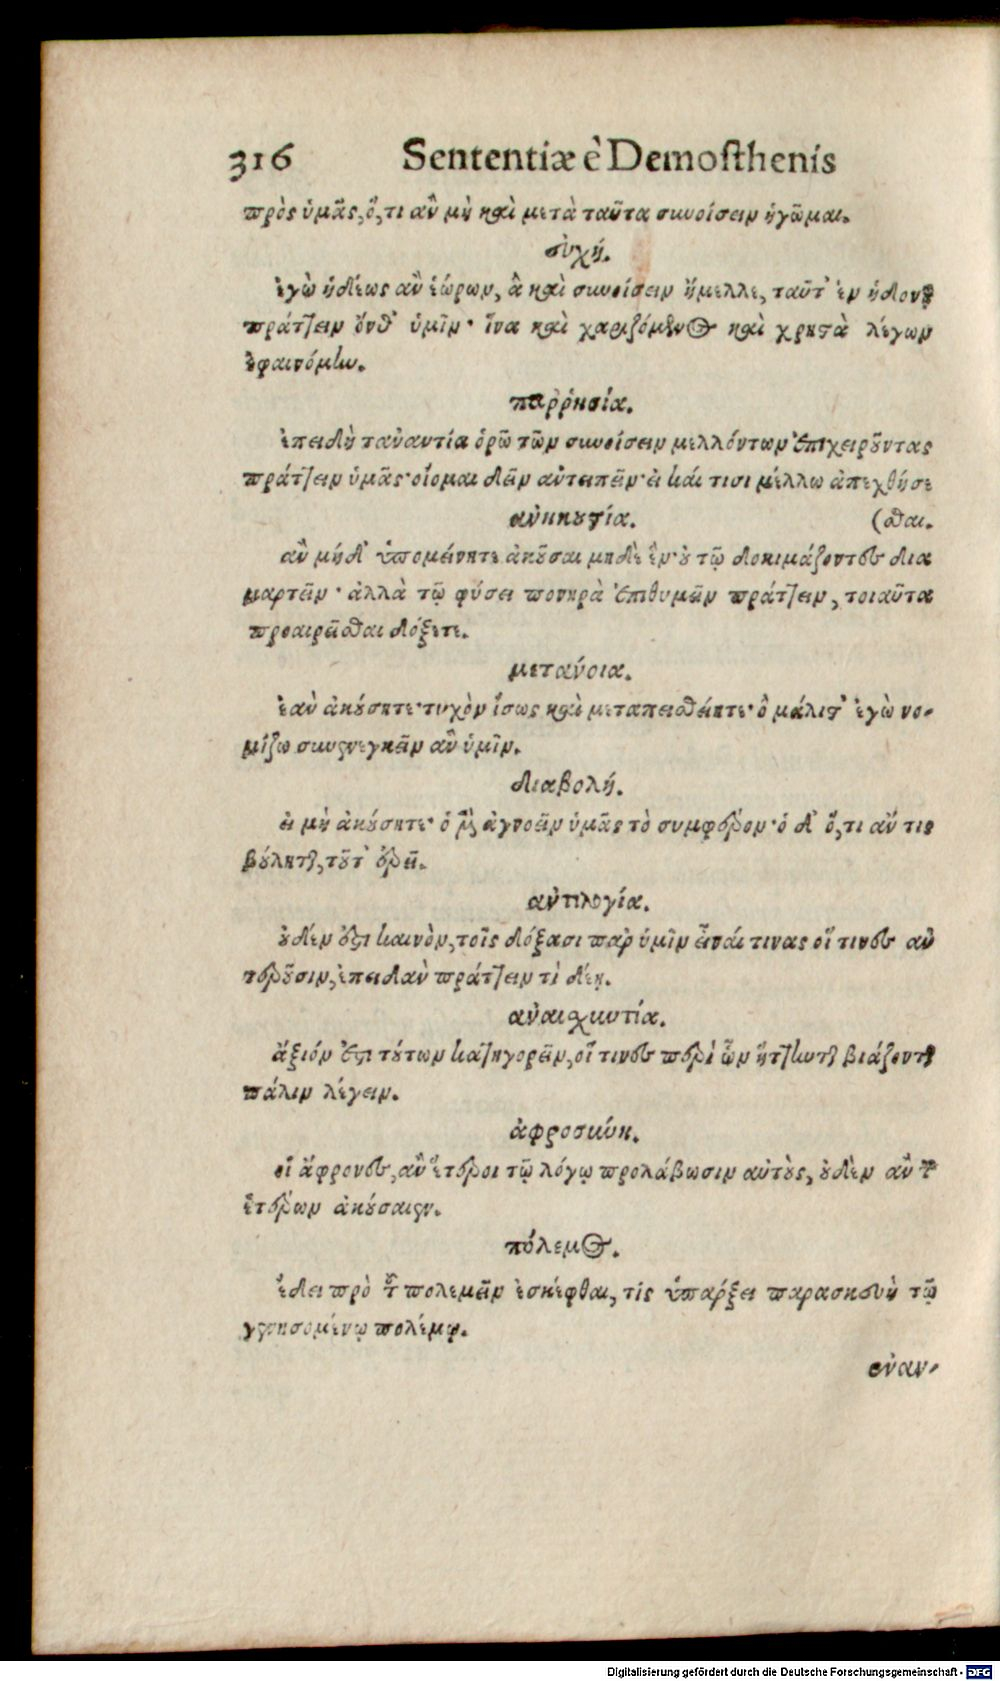 316 Sententiæ è Demosthenis
πρὸς ὑμᾶς, ὅ, τι ἂν μὴ καὶ μετὰ ταῦτα συνοίσειν ἡγῶμαι.
εὐχή.
ἐγὼ ἡδέως ἂν ἑώρων, ἃ καὶ συνοίσειν ἤμελλε, ταῦτ᾽ ἐν ἡδονῇ
πράττειν ὄνθ᾽ ὑμῖν· ἵνα καὶ χαριζόμενος καὶ χρηστὰ λέγων
ἐφαινόμην.
παῤῥησία.
ἐπειδὴ ταναντία ὁρῶ τῶν συνοίσειν μελλόντων ἐπιχειροῦντας
πράττειν ὑμᾶς· οἴομαι δεῖν ἀντειπεῖν· εἰ καί τισι μέλλω ἀπεχθήσε
ἀνηκουστία. (σθαι.
ἂν μηδ᾽ ὑπομείνητε ἀκοῦσαι μηδὲ ἓν· οὐ τῷ δοκιμάζοντες δια
μαρτεῖν· ἀλλὰ τῷ φύσει πονηρὰ ἐπιθυμεῖν πράττειν, τοιαῦτα
προαιρεῖσθαι δόξετε.
μετάνοια.
ἐὰν ἀκούσητε· τυχὸν ἴσως καὶ μεταπεισθείητε· ὃ μάλιστ᾽ ἐγὼ νο-
μίζω συνενεγκεῖν ἂν ὑμῖν.
διαβολή.
εἰ μὴ ἀκούσητε· ὁ μὲν ἀγνοεῖν ὑμᾶς τὸ συμφέρον· ὁ δ᾽ ὅ, τι ἄν τις
βούληται, τοῦτ᾽ ἐρεῖ.
ἀντιλογία.
οὐδέν ἐστι καινὸν, τοῖς δόξασι παρ᾽ ὑμῖν εἶναί τινας οἵ τινες ἀν
τεροῦσιν, ἐπειδὰν πράττειν τὶ δέῃ.
ἀναισχυντία.
ἄξιόν ἐστι τούτων κατηγορεῖν, οἵ τινες περὶ ὧν ἥττηνται βιάζονται
πάλιν λέγειν.
ἀφροσύνη.
οἱ ἄφρονες, ἂν ἕτεροι τῷ λόγῳ προλάβωσιν αὐτοὺς, οὐδὲν ἂν τῶν
ἑτέρων ἀκούσαιεν.
πόλεμος.
ἔδει πρὸ τοῦ πολεμεῖν ἐσκέφθαι, τίς ὑπάρξει παρασκευὴ τῷ
γενησομένῳ πολέμῳ.
ἐναν-
Digitalisierung gefördert durch die Deutsche Forschungsgemeinschaft - DFG